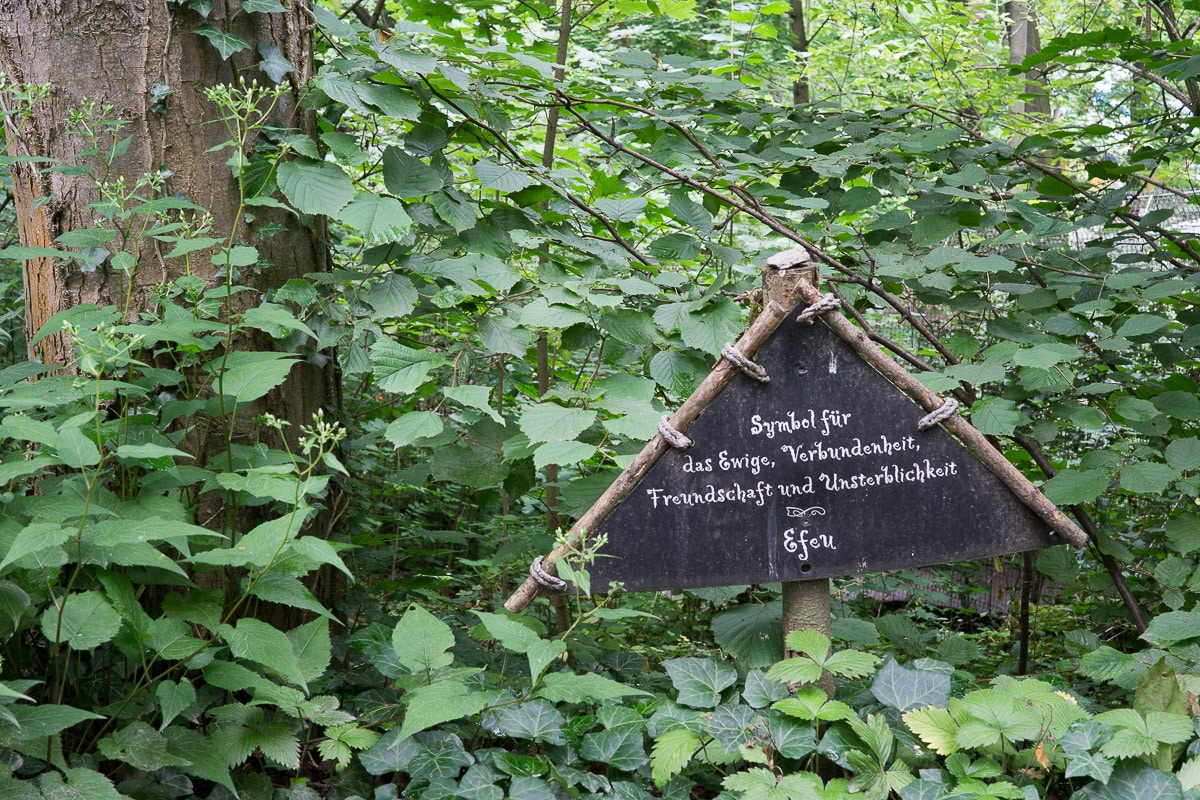 Symbol für
das Ewige, Verbundenheit,
Freundschaft und Unsterblichkeit
Efeu